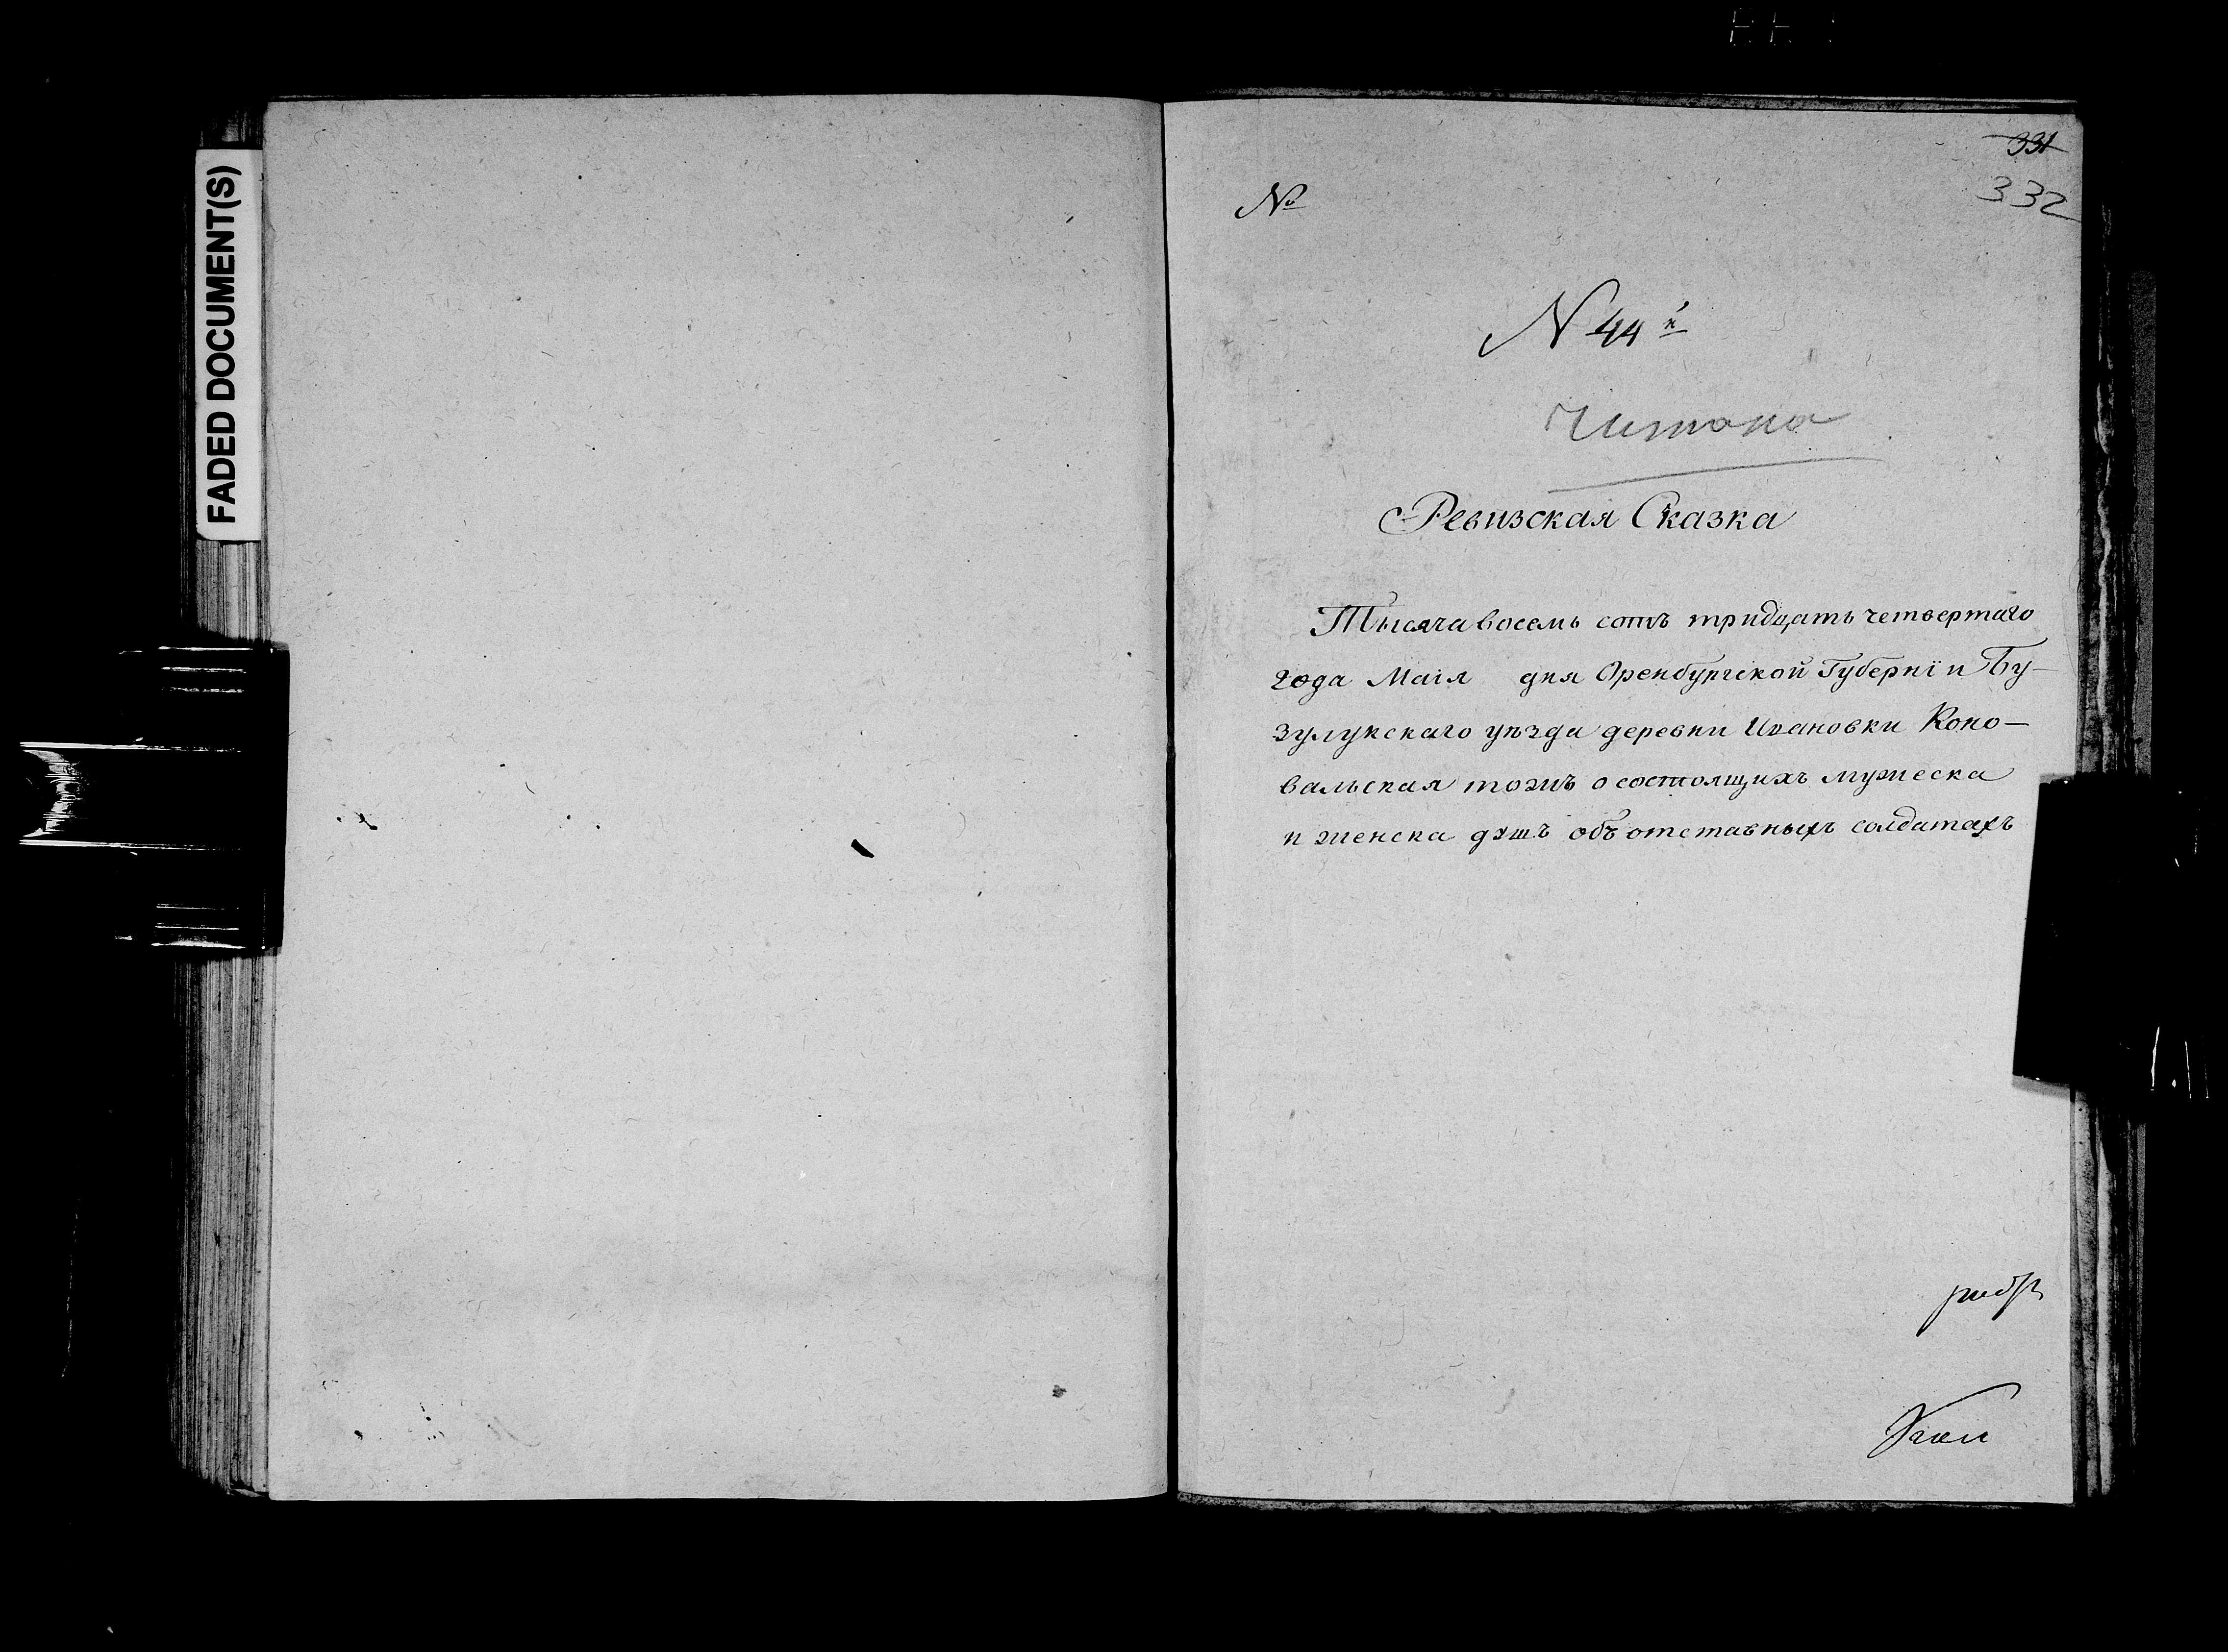 FADED DOCUMENT(S)
331
332
№
N 44й
Читано
Ревизская Сказка
Тысяча восемь сотъ тридцать четвертаго
года Маія дня Оренбургской Губерніи Бу-
зулукскаго уѣзда деревни Ивановки Коно-
вальская тожъ о состоящихъ мужеска
и женска душъ объ отставныхъ солдатахъ